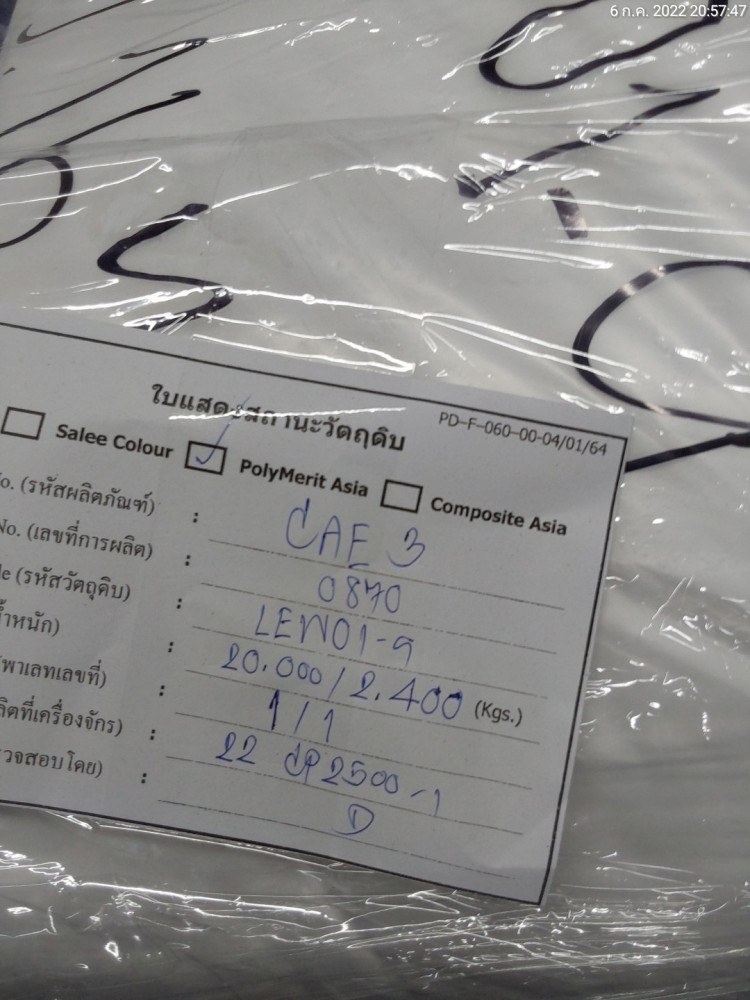 6 ก.ค. 2022 20:57:47
PD-F-060-00-04/01/64
ใบแสดงสถานะวัตถุดิบ
Salee Colour PolyMerit Asia Composite Asia
o. (รหัสผลิตภัณฑ์) : CAE 3
No. (เลขที่การผลิต) : 0870
le (รหัสวัตถุดิบ) : LEW01-9
้ำหนัก) : 20.000 / 2.400 (Kgs.)
พาเลทเลขที่) : 1/1
ลิตที่เครื่องจักร) : 22 CP2500-1
วจสอบโดย) :